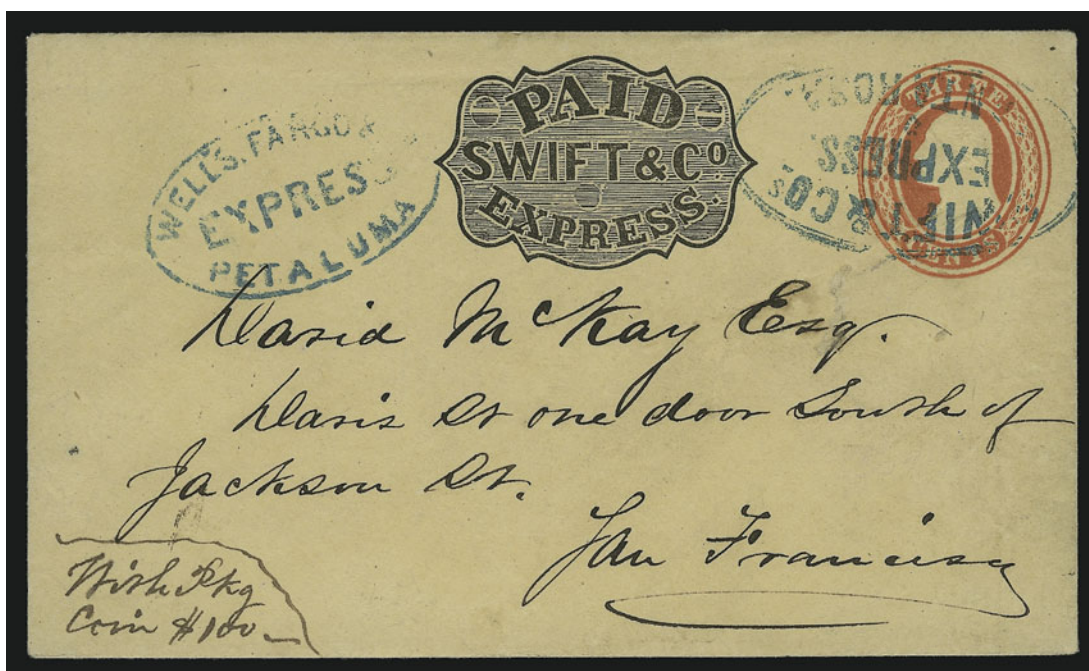 WELLS, FARGO &
EXPRESS
PETALUMA
PAID
SWIFT & Co
EXPRESS.
THREE
CENTS
WIFT & COs
EXPRESS.
David McKay Esq.
Davis St one door South of
Jackson St.
San Francisco
With Pkg
Coin $100